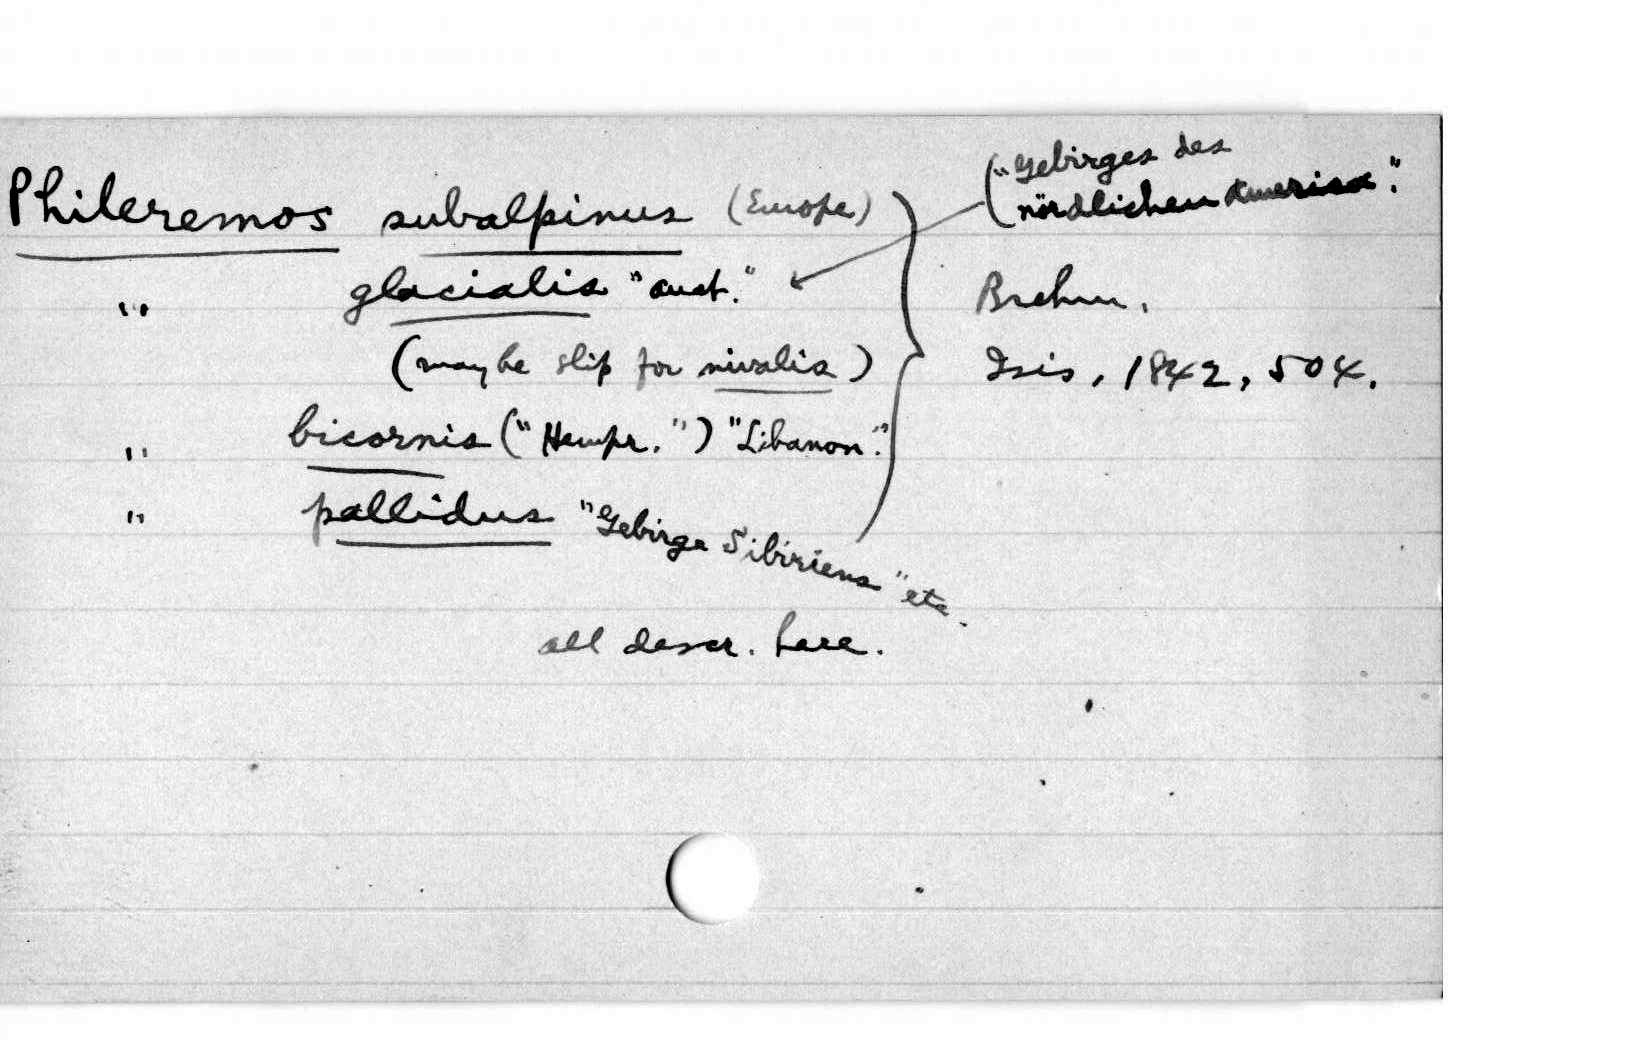 ("Gebirges des
nördlichen America".
Phileremos subalpinus (Europe)
" glacialis "auct."
Brehm.
(may be slip for nivalis)
Isis, 1842, 504.
" bicornis ("Hempr.") "Libanon".
" pallidus "Gebirge Sibiriens" etc.
all descr. here.